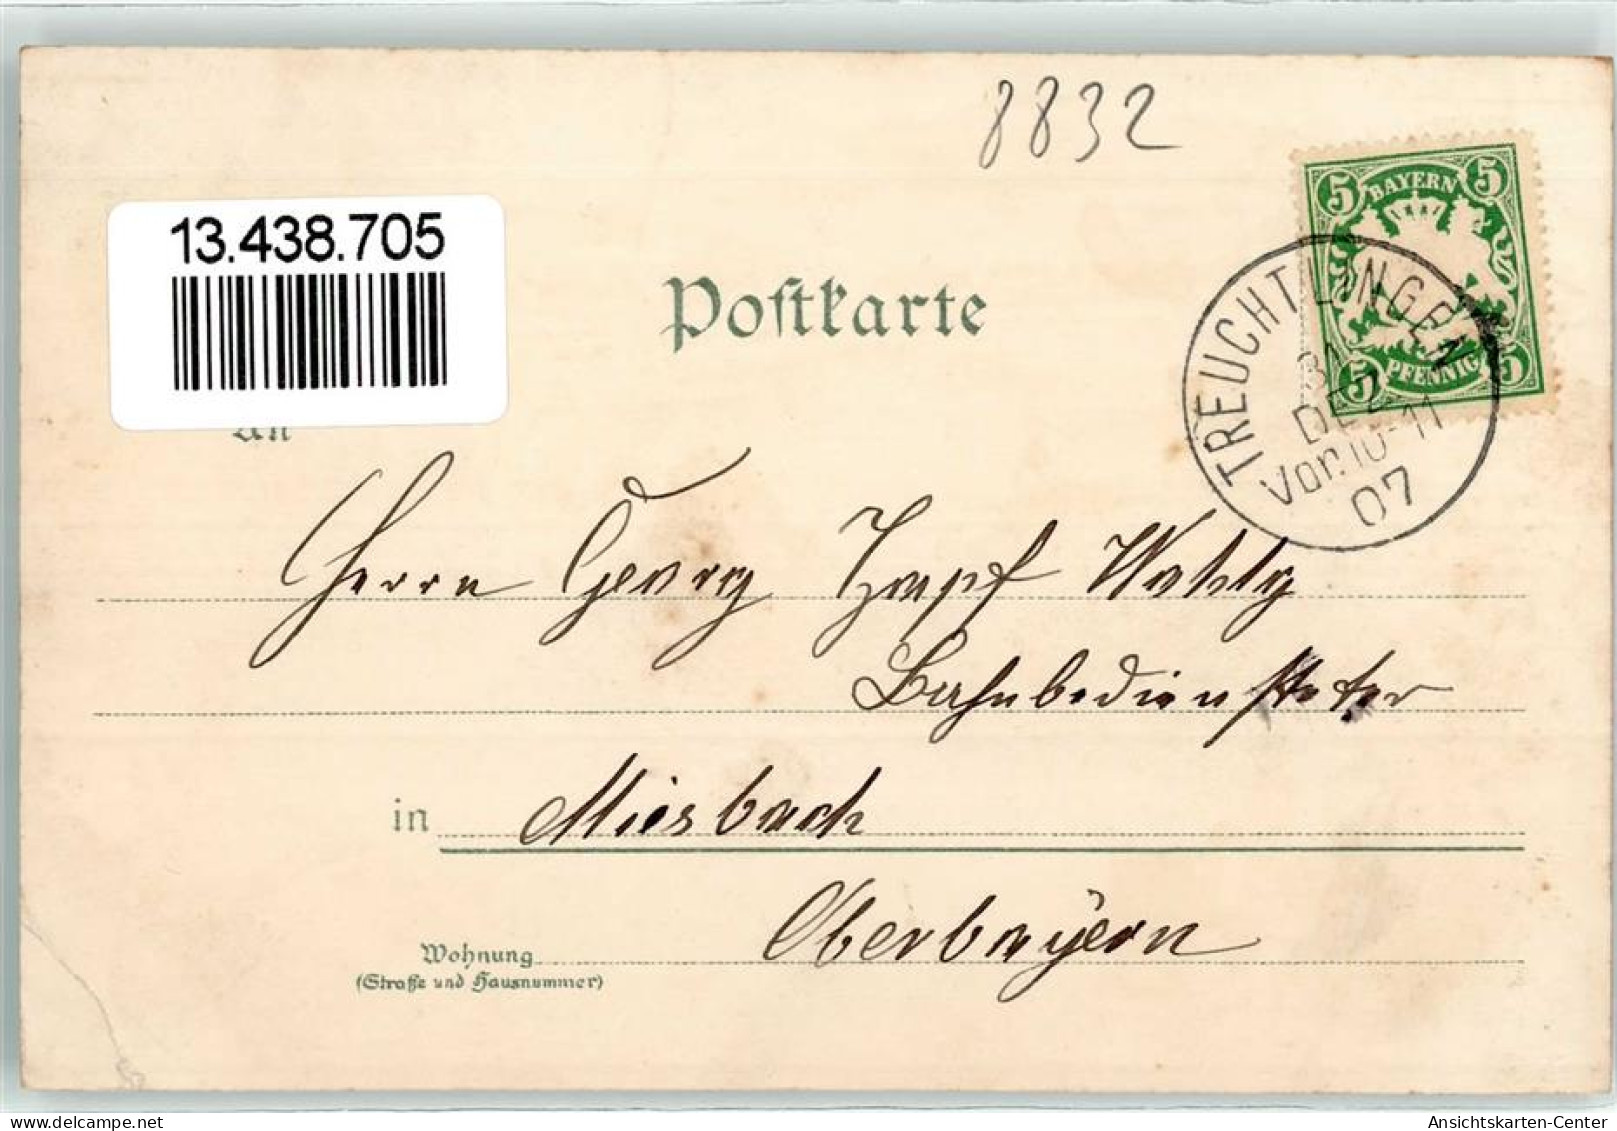 8832
13.438.705
BAYERN
5 5
5 PFENNIG 5
TREUCHTLINGEN
31
DEZ
Vor. 10-11
07
Postkarte
An
Herrn Georg Zapf
Bahnbediensteter
in Miesbach
Oberbayern
Wohnung
(Straße und Hausnummer)
Ansichtskarten-Center